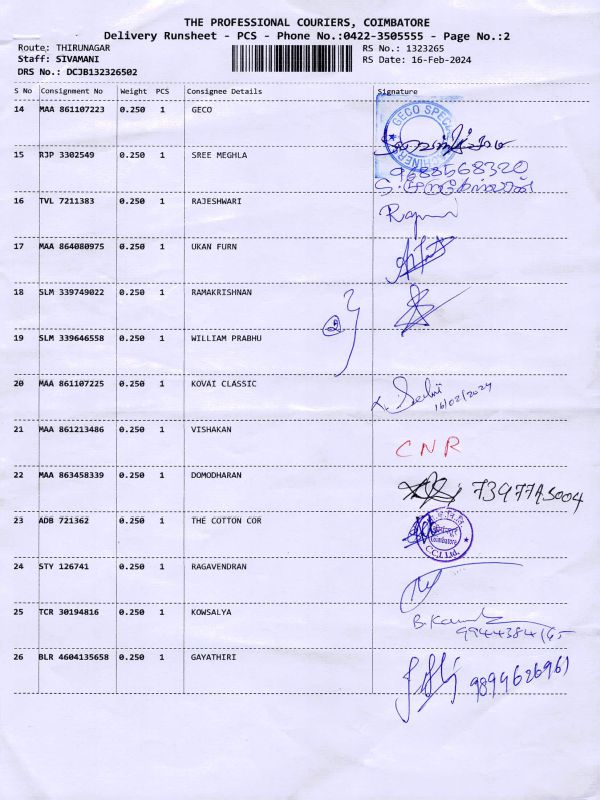 THE PROFESSIONAL COURIERS, COIMBATORE
Delivery Runsheet - PCS - Phone No.:0422-3505555 - Page No.:2
Route: THIRUNAGAR RS No.: 1323265
Staff: SIVAMANI RS Date: 16-Feb-2024
DRS No.: DCJB132326502
S No Consignment No Weight PCS Consignee Details Signature
14 MAA 861107223 0.250 1 GECO
15 RJP 3302549 0.250 1 SREE MEGHLA 9688568320
16 TVL 7211383 0.250 1 RAJESHWARI
17 MAA 864080975 0.250 1 UKAN FURN
18 SLM 339749022 0.250 1 RAMAKRISHNAN
2
19 SLM 339646558 0.250 1 WILLIAM PRABHU
20 MAA 861107225 0.250 1 KOVAI CLASSIC 16/02/2024
21 MAA 861213486 0.250 1 VISHAKAN CNR
22 MAA 863458339 0.250 1 DOMODHARAN
23 ADB 721362 0.250 1 THE COTTON COR
Coimbatore
C.C.I. Ltd.
24 STY 126741 0.250 1 RAGAVENDRAN
25 TCR 30194816 0.250 1 KOWSALYA
26 BLR 4604135658 0.250 1 GAYATHIRI 9899626961